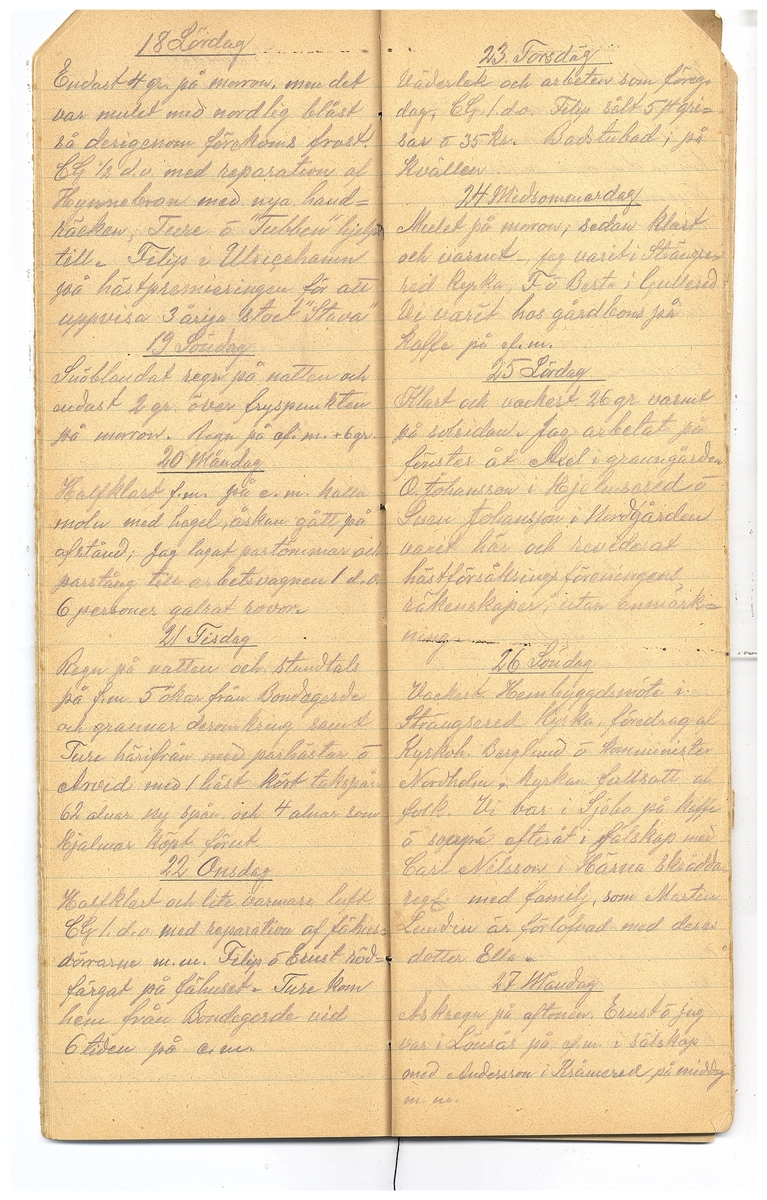 18 Lördag
Endast 4 gr. på morron, men det
var mulet med nordlig blåst
så derigenom förekoms frost.
CG ½ d.v. med reparation af
Hynnebron med nya hand=
räcken, Ture o "Tubben" hjelpt
till. Filip i Ulricehamn
på hästpremieringen för att
uppvisa 3 åriga stoet "Stava"
19 Söndag
Snöblandat regn på natten och
endast 2 gr. över fryspunkten
på morron. Regn på ef.m. +6 gr.
20 Måndag
Halfklart f.m. på e.m. kalla
moln med hagel, åskan gått på
afstånd, Jag lagat partömmar och
parstång till arbetsvagnen 1 d.v.
6 personer galrat rovor.
21 Tisdag
Regn på natten och stundtals
på f.m. 5 ökar från Bondagerde
och grannar deromkring samt
Ture härifrån med parhästar o
Arvid med 1 häst kört takspån
62 alnar ny spån, och 4 alnar som
Hjalmar köpt förut.
22 Onsdag
Halfklart och lite varmare luft
CG 1 d.v. med reparation af fähus=
dörrarne m.m. Filip o Ernst röd=
färgat på fähuset. Ture kom
hem från Bondegerde vid
6 tiden på e.m.
23. Torsdag
Väderlek och arbeten som föreg.
dag, CG 1 d.v. Filip sålt 5 st gri=
sar o 35 kr. Badstubad, på
Kvällen
24 Midsommardag
Mulet på morron, sedan klart
och varmt. Jag varit i Strängse=
red Kyrka, F o Berta i Gullered
Vi varit hos gårdbons på
Kaffe på ef.m.
25 Lördag
Klart och vackert 26 gr. varmt
på solsidan. Jag arbetat på
fönster åt Axel i granngården
O. Johansson i Hjelmsered o
Svan Johansson i Nordgården
varit här och reviderat
hästförsäkringsföreningens
räkenskaper, utan anmärk=
ning
26 Söndag
Vackert. Hembygdsmöte i
Strängsered Kyrka, föredrag af
Kyrkoh. Berglund o Komminister
Nordholm, Kyrkan fullsatt af
folk. Vi var i Sjöbo på kaffe
o supé efteråt i sälskap med
Carl Nilsson i Härna Skrädda
regl. med familj, som Marten
Lundin är förlofvad med deras
dotter Ella.
27 Måndag
Åskregn på aftonen. Ernst o jag
var i Lonsås på ef.m. i sälskap
med Andersson i Kråmered på middag
m.m.